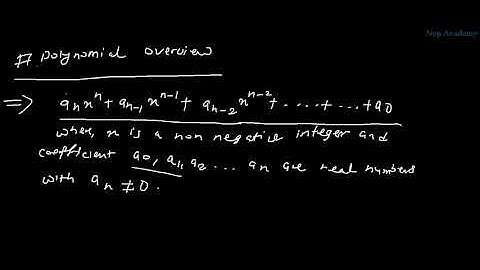 Nep Academy
# polynomial overview
⇒ aₙxⁿ + aₙ₋₁xⁿ⁻¹ + aₙ₋₂xⁿ⁻² + .... + ... + a₀
where, n is a non negative integer and
coefficient a₀, a₁, a₂ ... aₙ are real numbers
with aₙ ≠ 0.